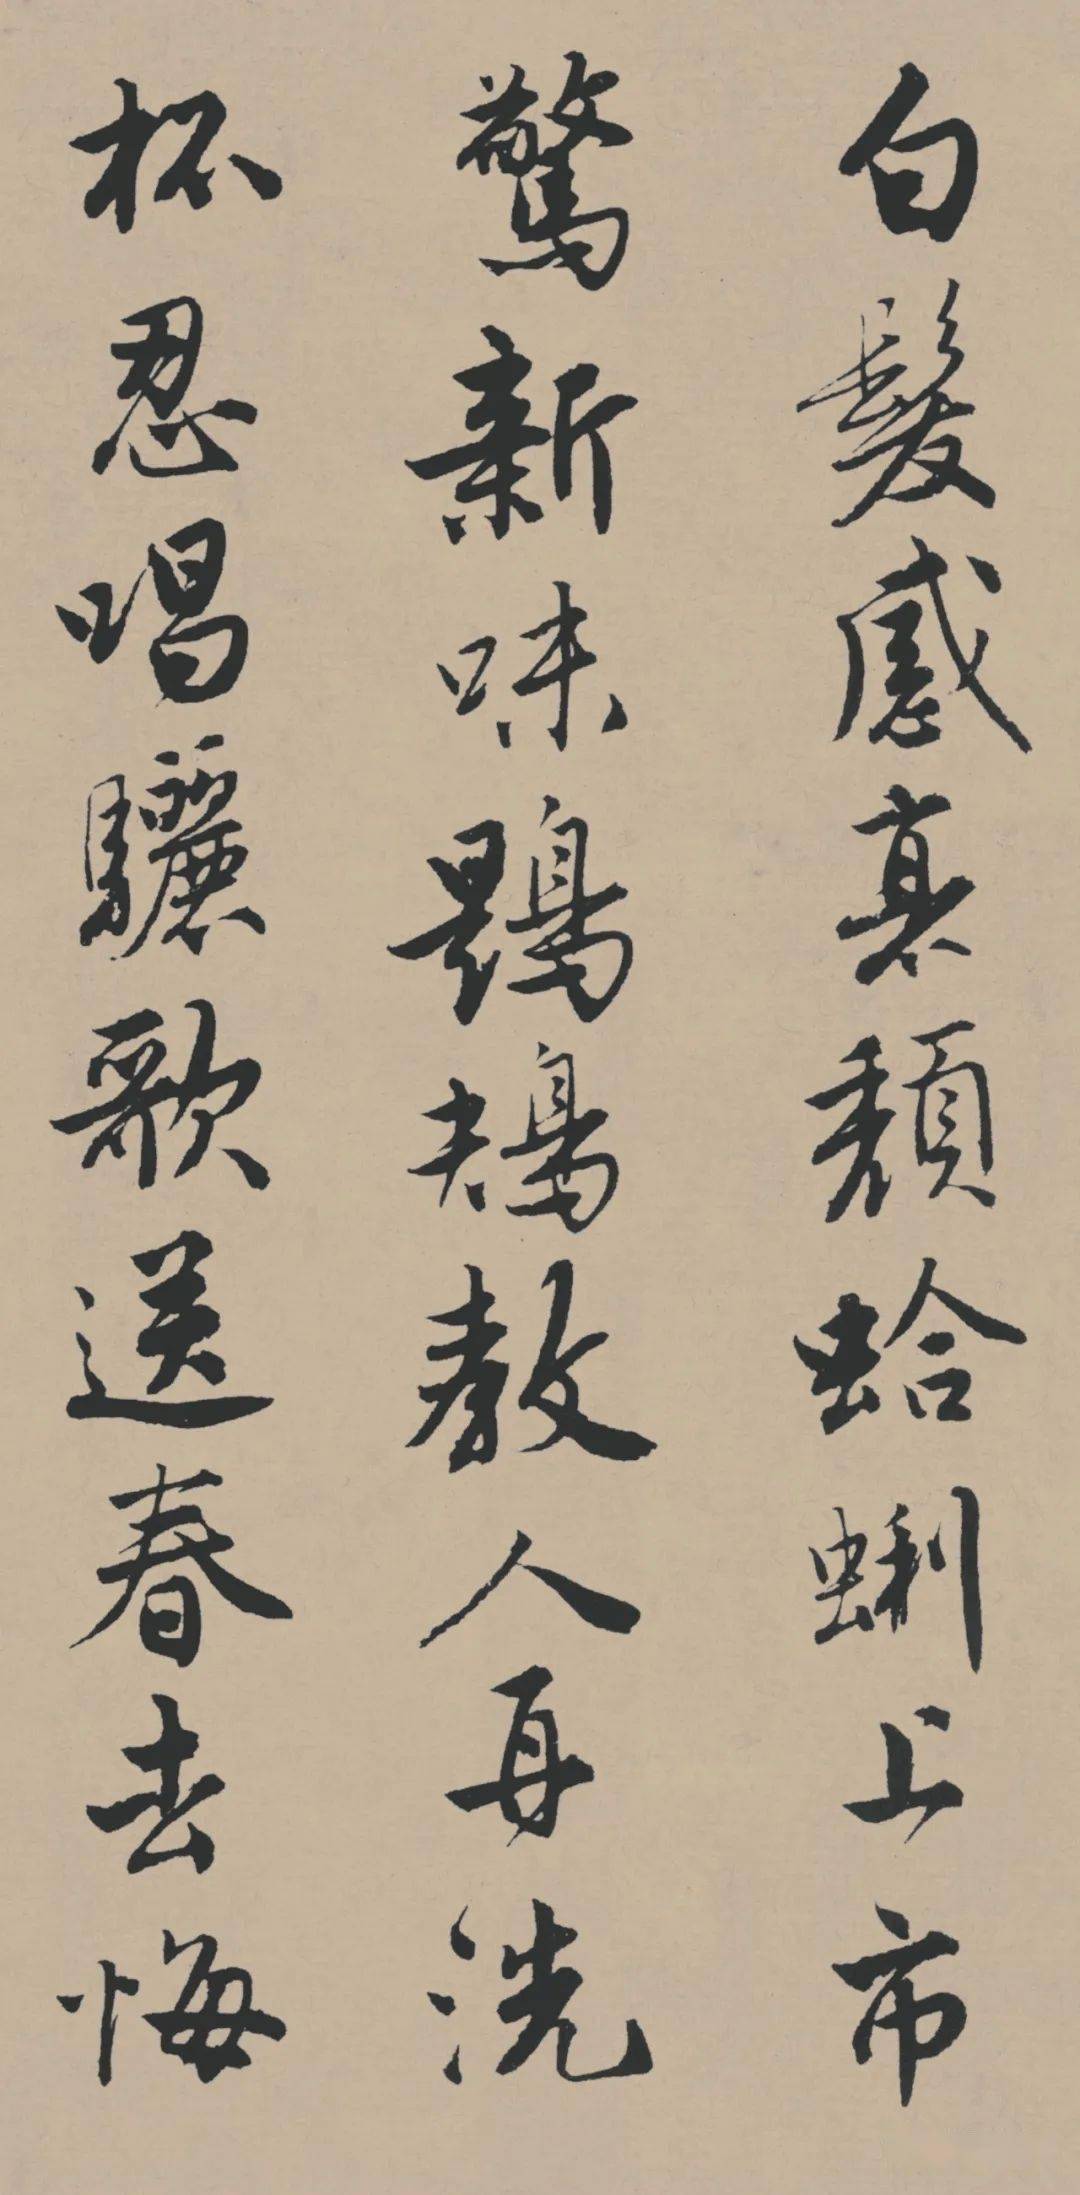 白髮感衰頹蛤蜊上市
驚新味鶗鴂教人再洗
杯忍唱驪歌送春去悔